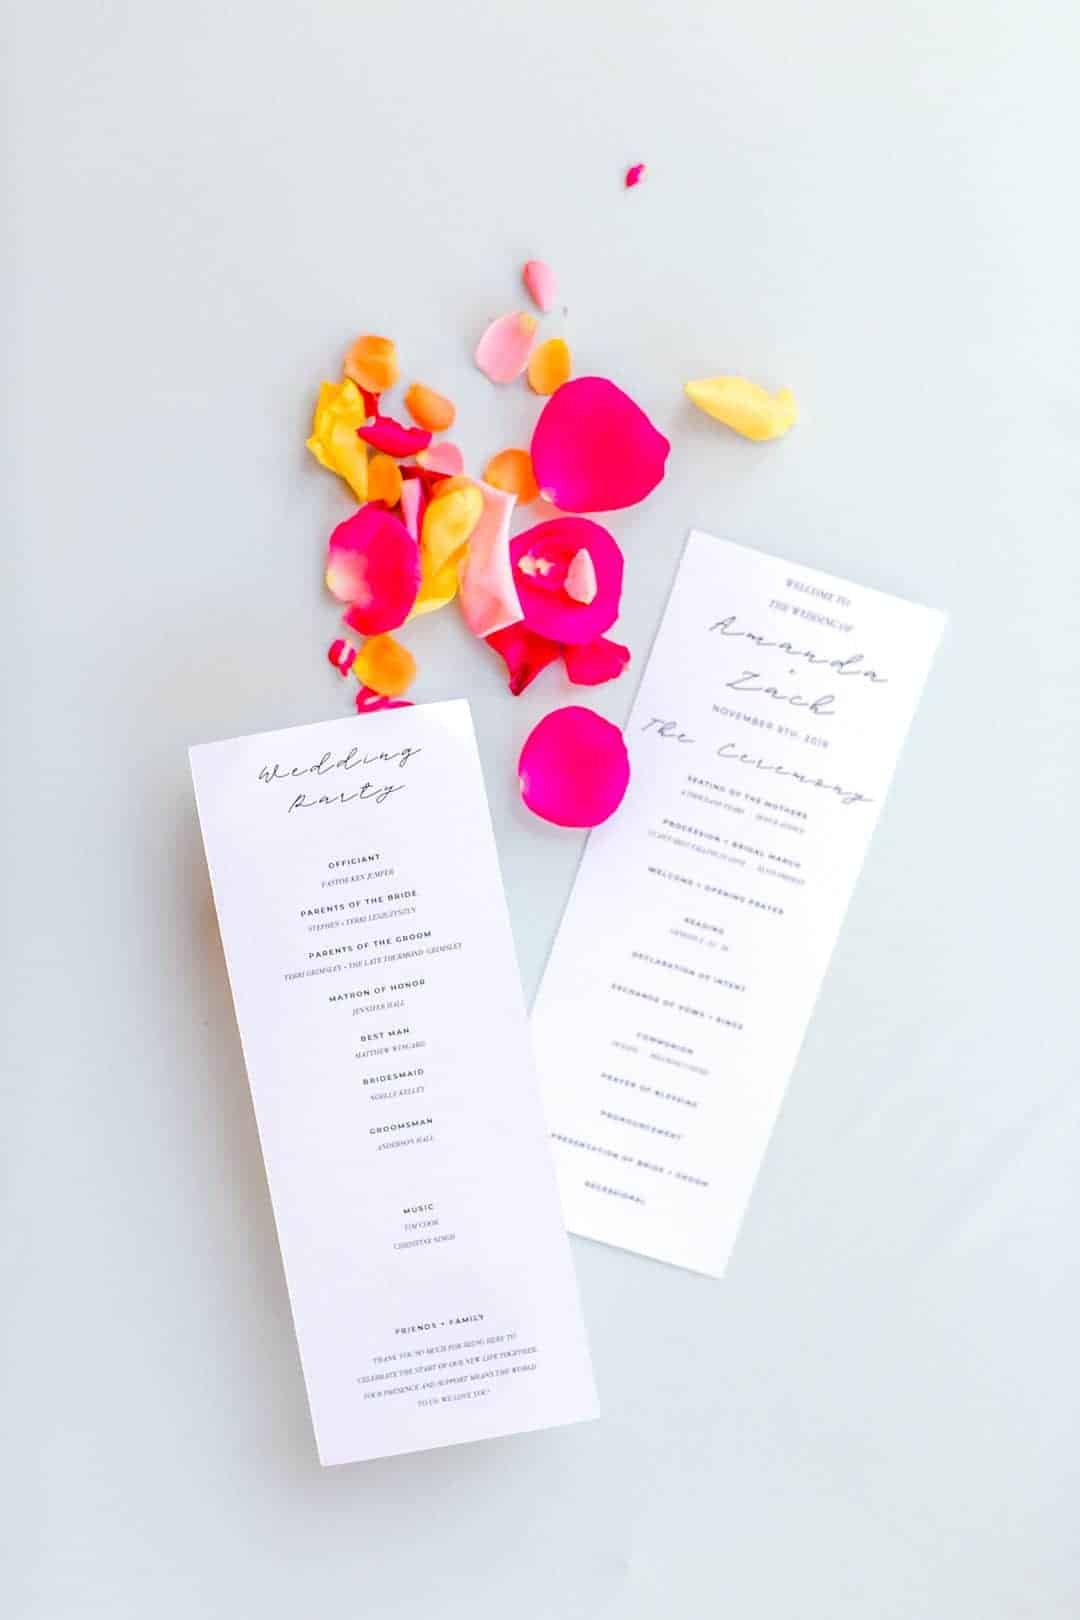 Wedding
Party
OFFICIANT
PASTOR KEN JUMPER
PARENTS OF THE BRIDE
STEPHEN + TERRI LESZCZYNSKY
PARENTS OF THE GROOM
TERRI GRIMSLEY + THE LATE THURMOND GRIMSLEY
MATRON OF HONOR
JENNIFER HALL
BEST MAN
MATTHEW WINGARD
BRIDESMAID
NOELLE KELLEY
GROOMSMAN
ANDERSON HALL
MUSIC
TIM COOK
CHRISTINE SINGH
FRIENDS + FAMILY
THANK YOU SO MUCH FOR BEING HERE TO
CELEBRATE THE START OF OUR NEW LIFE TOGETHER.
YOUR PRESENCE AND SUPPORT MEANS THE WORLD
TO US. WE LOVE YOU!
WELCOME TO
THE WEDDING OF
Amanda
+
Zach
NOVEMBER 9TH, 2019
The Ceremony
SEATING OF THE MOTHERS
A THOUSAND YEARS
PROCESSION + BRIDAL MARCH
CAN'T HELP FALLING IN LOVE ELVIS PRESLEY
WELCOME + OPENING PRAYER
READING
DECLARATION OF INTENT
EXCHANGE OF VOWS + RINGS
COMMUNION
PRAYER OF BLESSING
PRONOUNCEMENT
PRESENTATION OF BRIDE + GROOM
RECESSIONAL